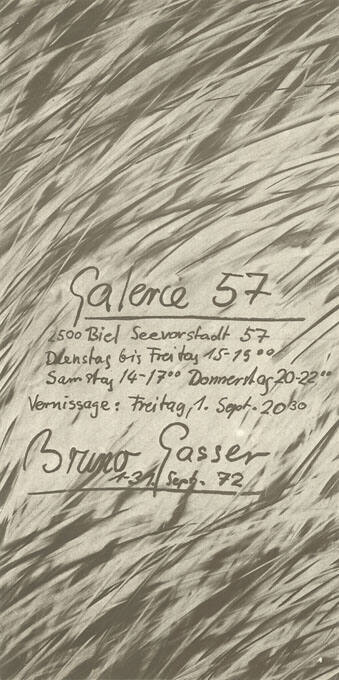 Galerie 57
2500 Biel Seevorstadt 57
Dienstag bis Freitag 15-19⁰⁰
Samstag 14-17⁰⁰ Donnerstag 20-22⁰⁰
Vernissage: Freitag, 1. Sept. 20³⁰
Bruno Gasser
1-31. Sept. 72